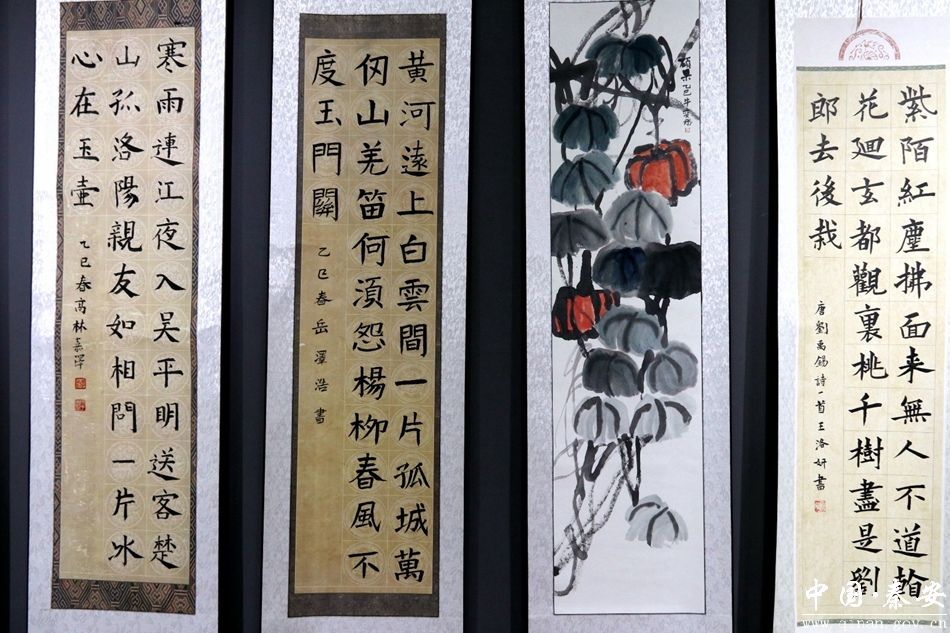 寒雨連江夜入吳平明送客楚
山孤洛陽親友如相問一片冰
心在玉壺
乙巳春高林嘉澤
黃河遠上白雲間一片孤城萬
仞山羌笛何須怨楊柳春風不
度玉門關
乙巳春岳澤浩書
碩果乙巳年
紫陌紅塵拂面来無人不道翰
花廻玄都觀裏桃千樹盡是劉
郎去後栽
唐劉禹錫詩一首王洛妍書
中国·秦安
www.qinan.gov.cn